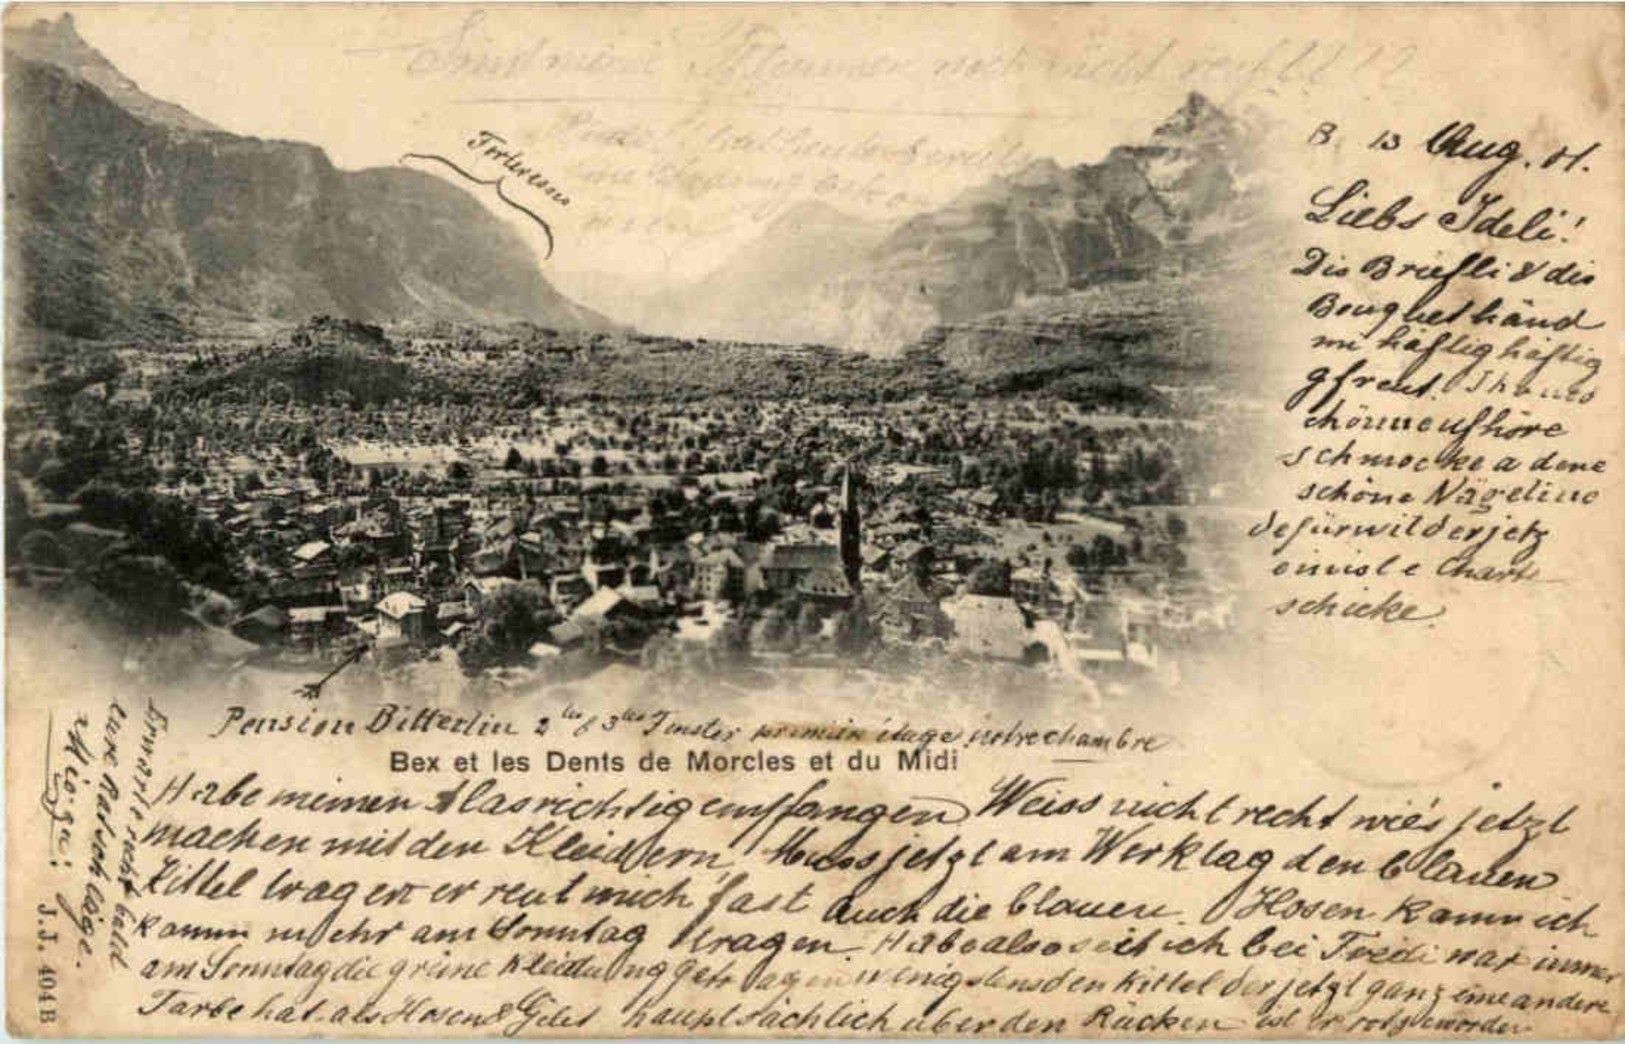 noch nicht
B. 13 Aug. 01.
Liebs Ideli!
Die Briefli & dis
Bouquet händ
mi häftig häftig
gfreut.
chönne ufhöre
schmöcke a dene
schöne Nägeline
defür will der jetz
Charte
schicke.
Pension Bitterlin 2 & 3 Fenster première étage notre chambre
Bex et les Dents de Morcles et du Midi
Habe meinen richtig empfangen Weiss nicht recht wie's jetzt
machen mit den Kleidern, Muss jetzt am Werktag den blauen
Kittel tragen er reut mich fast Auch die blauen Hosen kann ich
kaum mehr am Sonntag tragen. Habe also seit ich bei Fredi war immer
am Sonntag die grüne Kleidung getragen wenigstens den Kittel der jetzt ganz eine andere
Farbe hat als Hosen & Gilet hauptsächlich über den Rücken ist er rot geworden
Erwarte recht bald
eure Ratschläge.
J.J. 404 B